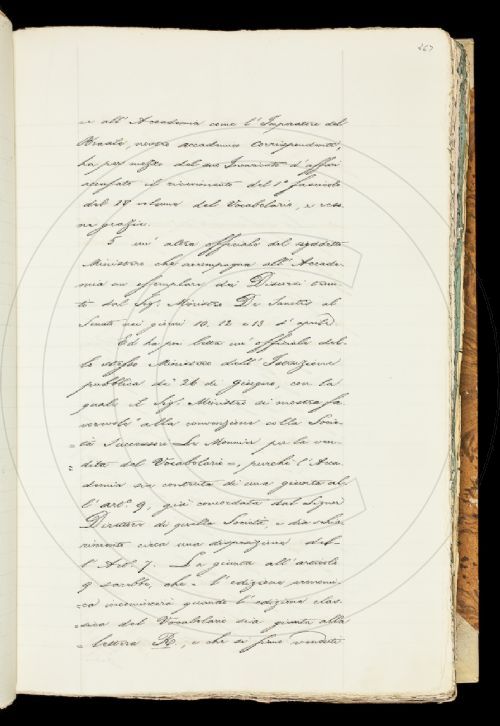 267
ce all' Accademia come l' Imperatore del
Brasile, nostro accademico corrispondente,
ha per mezzo del suo Incaricato d' affari
accusato il ricevimento del 1º fascicolo
del 28 volume del Vocabolario, e rese
ne grazie.
E un' altra officiale del suddetto
Ministero che accompagna all' Accade-
mia un esemplare dei Discorsi tenu-
ti dal Sig. Ministro De Sanctis al
Senato nei giorni 10, 12 e 13 d' aprile.
Ed ha poi letta un' officiale del-
lo stesso Ministero dell' Istruzione
pubblica de' 26 di Giugno, con la
quale il Sig. Ministro si mostra fa-
vorevole alla convenzione colla Socie-
tà Successori Le Monnier per la ven-
dita del Vocabolario, purchè l' Acca-
demia sia contenta di una giunta al-
l' artº. 9, già concordata dal Signor
Direttore di quella Società, e dia schia-
rimento circa una disposizione del-
l' Art. 7. La giunta all' articolo
9 sarebbe, che = l' edizione economi-
ca incomincerà quando l' edizione clas-
sica del Vocabolario sia giunta alla
lettera R., e che si siano vendute